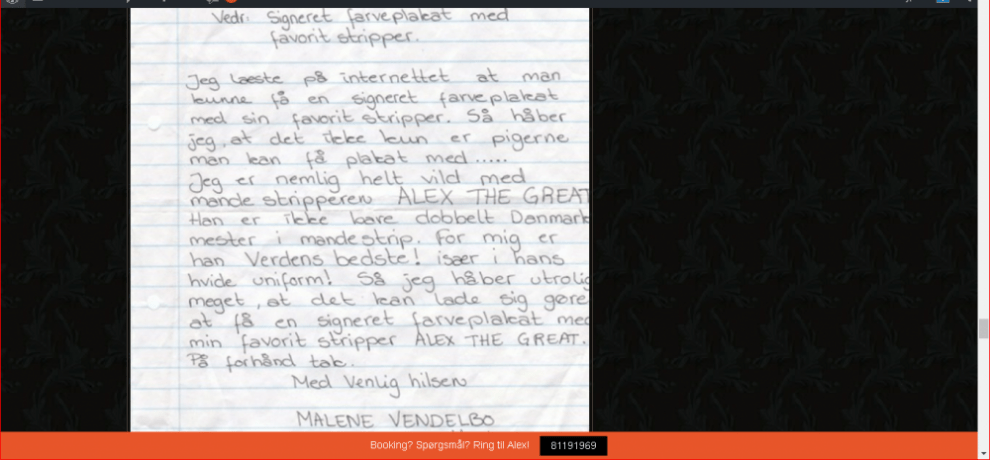 Vedr. Signeret farveplakat med
favorit stripper.
Jeg læste på internettet at man
kunne få en signeret farveplakat
med sin favorit stripper. Så håber
jeg, at det ikke kun er pigerne
man kan få plakat med.....
Jeg er nemlig helt vild med
mande stripperen ALEX THE GREAT
Han er ikke bare dobbelt Danmark
mester i mandestrip. For mig er
han Verdens bedste! især i hans
hvide uniform! Så jeg håber utrolig
meget, at det kan lade sig gøre
at få en signeret farveplakat med
min favorit stripper ALEX THE GREAT.
På forhånd tak.
Med Venlig hilsen
MALENE VENDELBO
Booking? Spørgsmål? Ring til Alex! 81191969